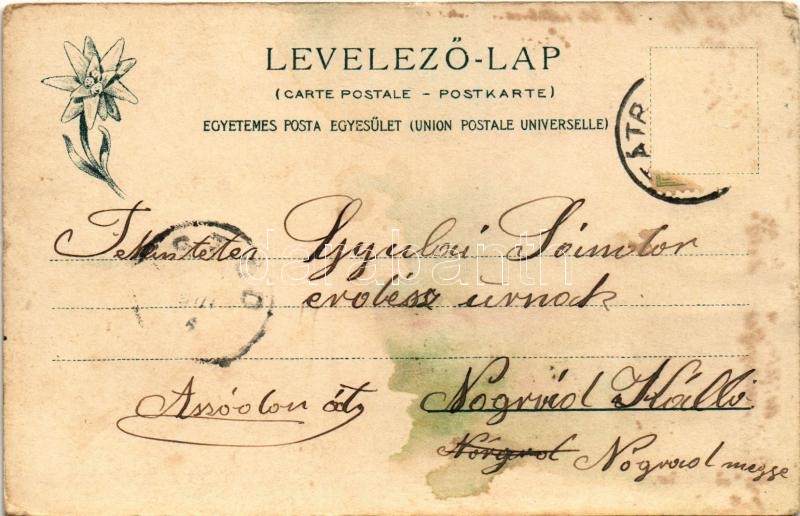 LEVELEZŐ-LAP
(CARTE POSTALE – POSTKARTE)
EGYETEMES POSTA EGYESÜLET (UNION POSTALE UNIVERSELLE)
ÁTR
Tekintetes Gyulai Sándor
erdész úrnak
Aszódon át Nógrád Kálló
Nógrád megye
darabanth